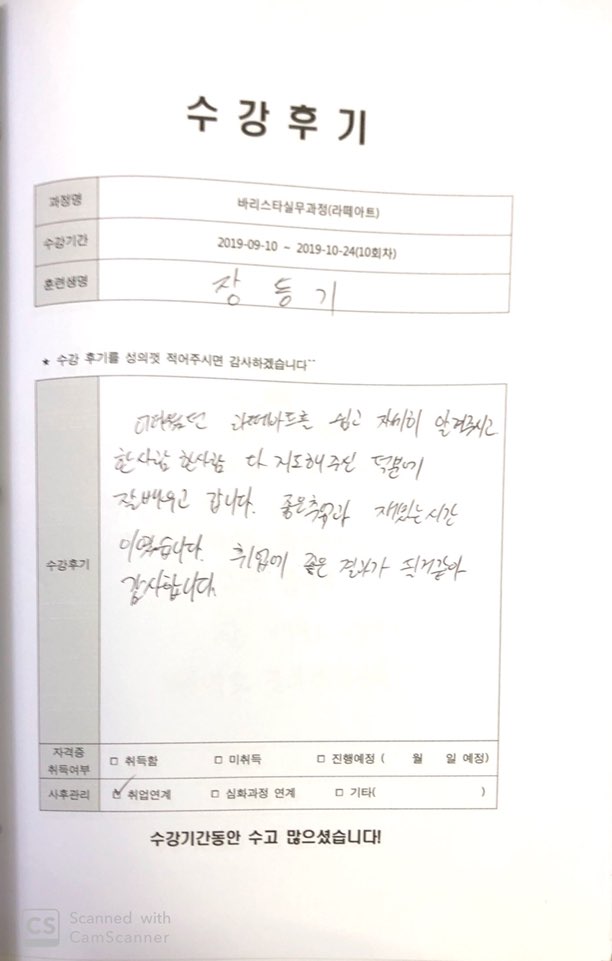 수강후기
과정명 바리스타실무과정(라떼아트)
수강기간 2019-09-10 ~ 2019-10-24(10회차)
훈련생명 장동기
★ 수강 후기를 성의껏 적어주시면 감사하겠습니다~~
수강후기
어려웠던 라떼아트를 쉽고 자세히 알려주시고
한사람 한사람 다 지도해주신 덕분에
잘배우고 갑니다. 좋은추억과 재밌는시간
이였습니다. 취업에 좋은 결과가 될거같아
감사합니다.
자격증 취득여부 □ 취득함 □ 미취득 □ 진행예정 ( 월 일 예정)
사후관리 ☑ 취업연계 □ 심화과정 연계 □ 기타( )
수강기간동안 수고 많으셨습니다!
CS Scanned with
CamScanner